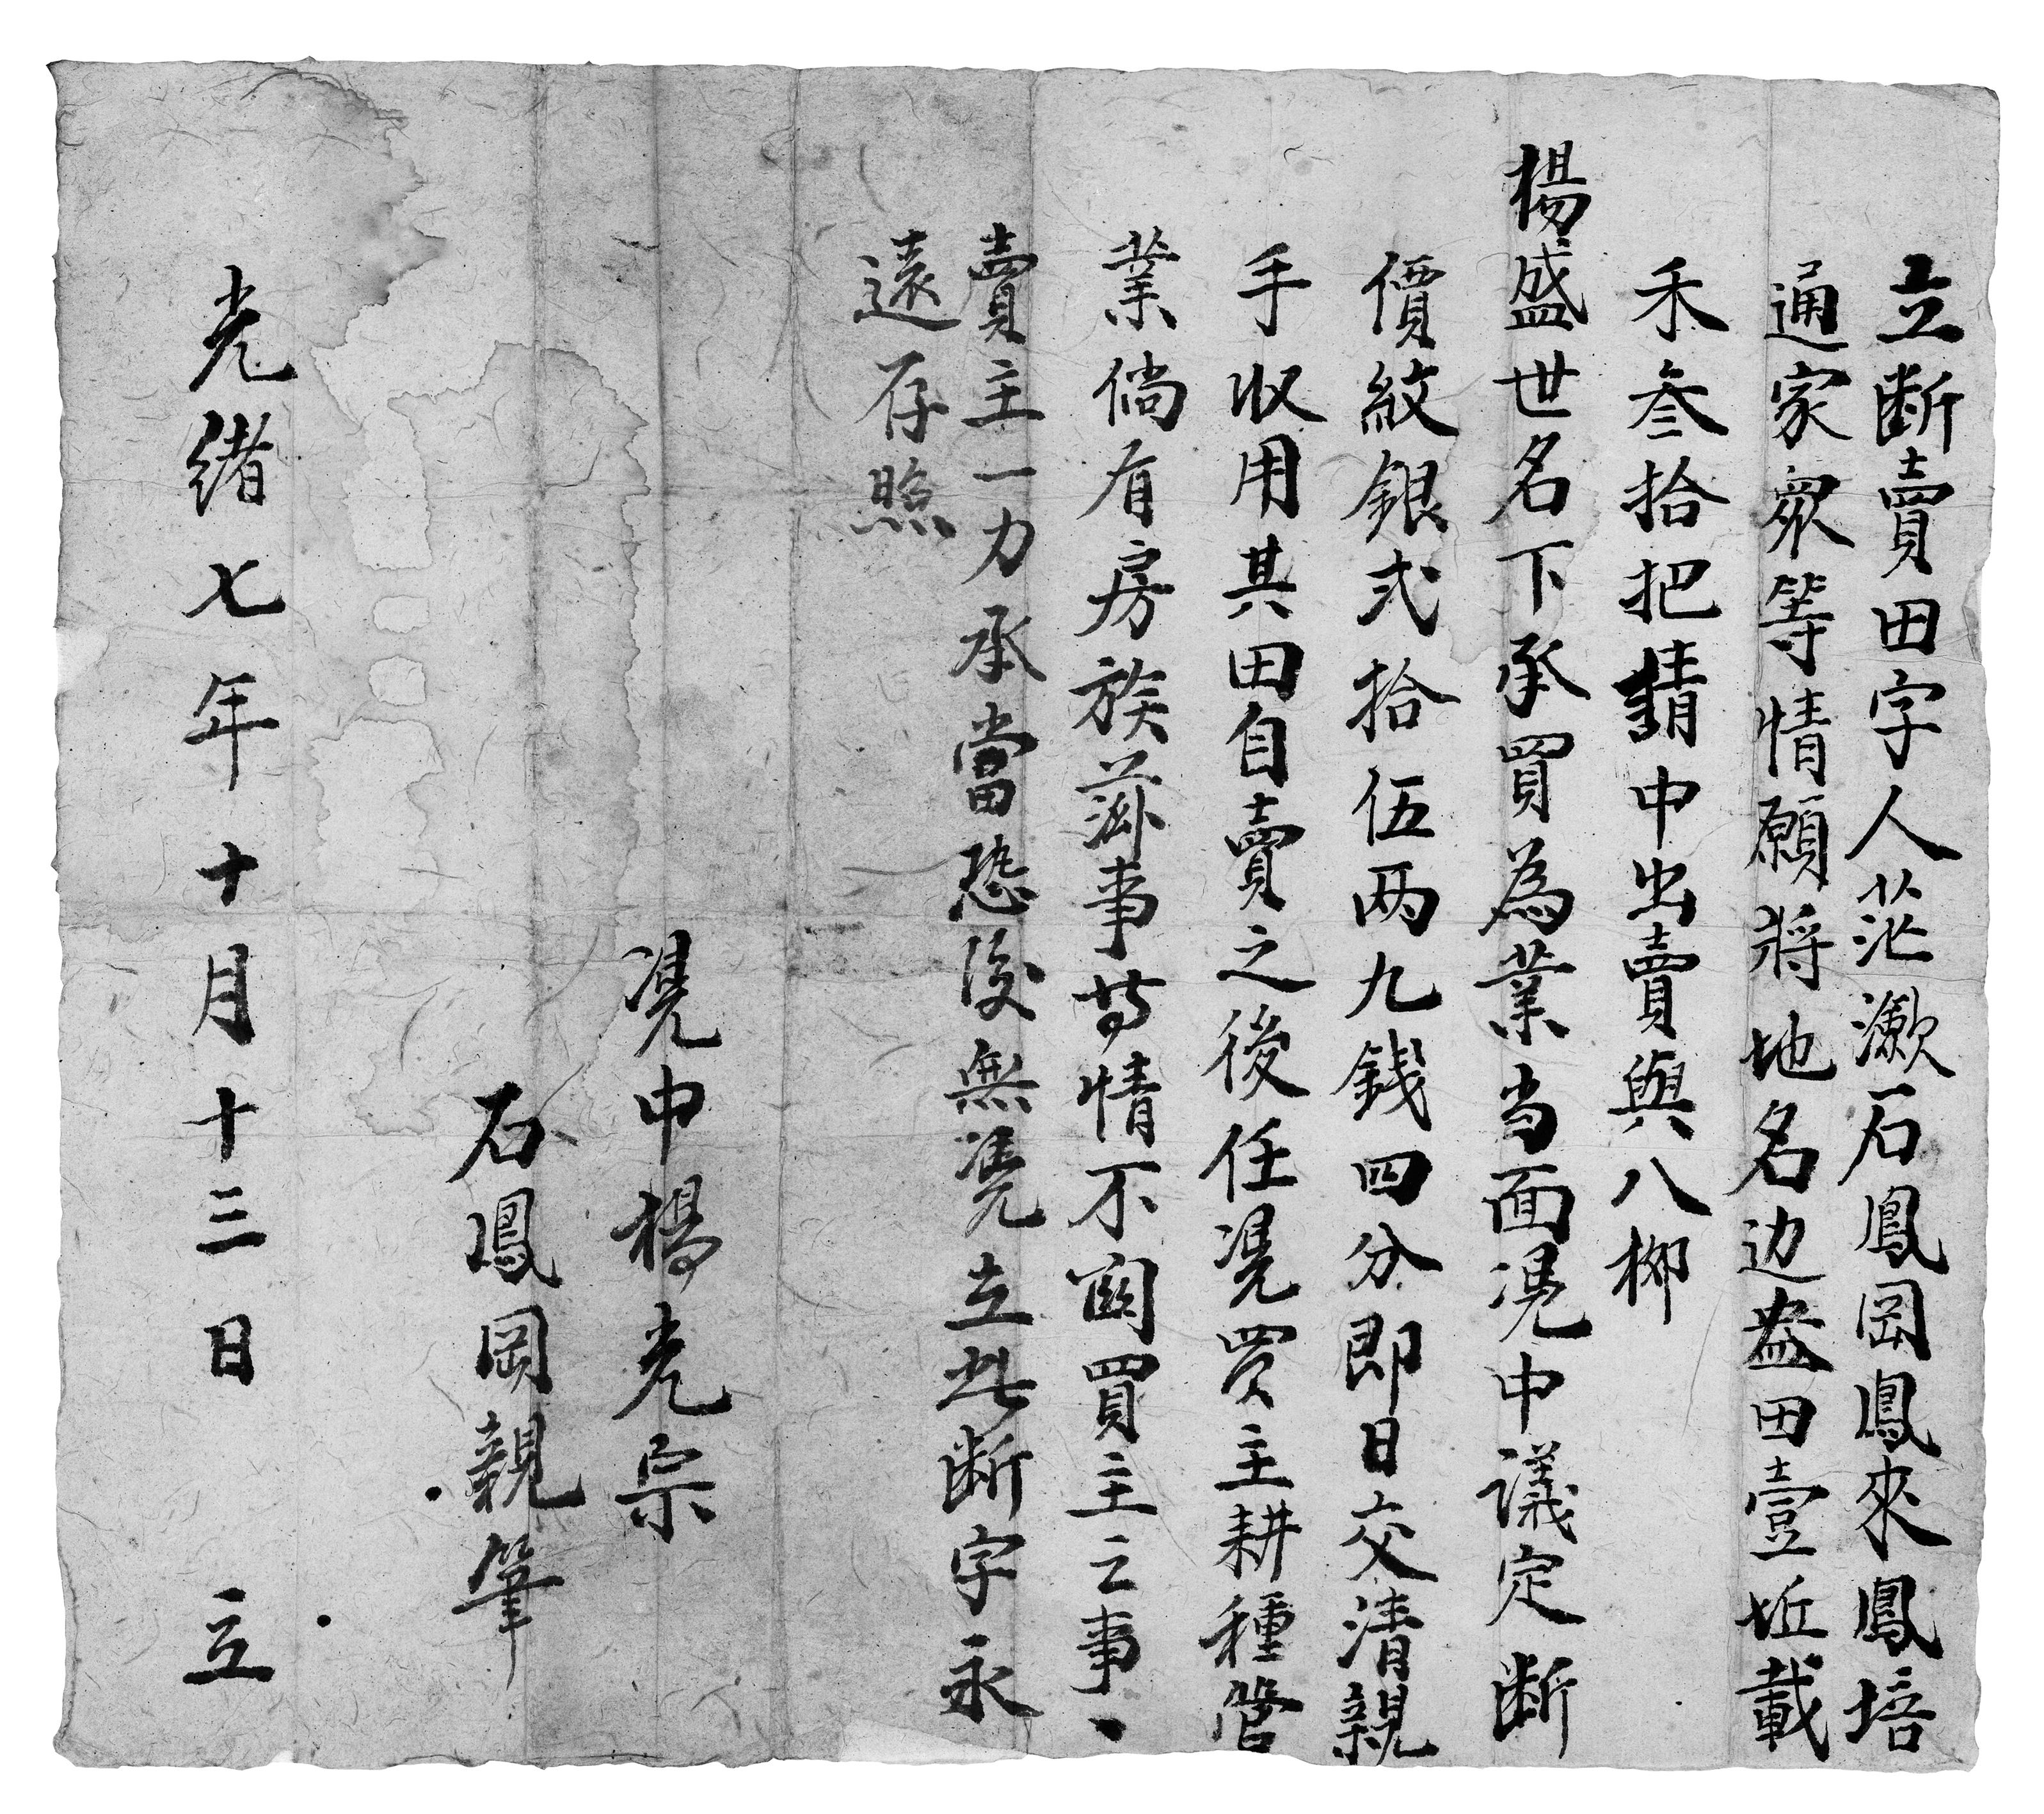 立断賣田字人茫漱石鳳岡鳳來鳳培
通家衆等情願将地名边盎田壹坵載
禾叁拾把請中出賣與八柳
楊盛世名下承買為業当面凴中議定断
價紋銀弍拾伍两九錢四分即日交清親
手収用其田自賣之後任凴買主耕種管
業倘有房族事等情不関買主之事
賣主一力承當恐後無凴立此断字永
遠存照
凴中楊光宗
石鳳岡親筆
光緒七年十月十三日 立